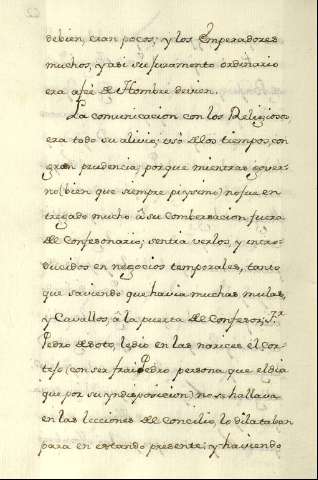 debien, eran pocos; y los Emperadores
muchos, y asi su juramento ordinario
era afeè de Hombre devien.
La comunicacion con los Religiosos
era todo su alivio; usò de los tiempos, con
gran prudencia; porque mientras gover-
no (bien que siempre piysimo) no fue en
tregado mucho â su combersacion fuera
de Confesonario; sentia verlos, y intro-
ducidos en negocios temporales, tanto
que saviendo que havia muchas mulas,
y Cavallos, â la puerta de Confesor, Fr.
Pedro de Soto, le dio en las narices el cor-
tejo (con ser frai Pedro persona que el dia
que por su yndisposicion) no se hallava
en las lecciones de Concilio, lo dilataban
para en estando presente; y haviendo